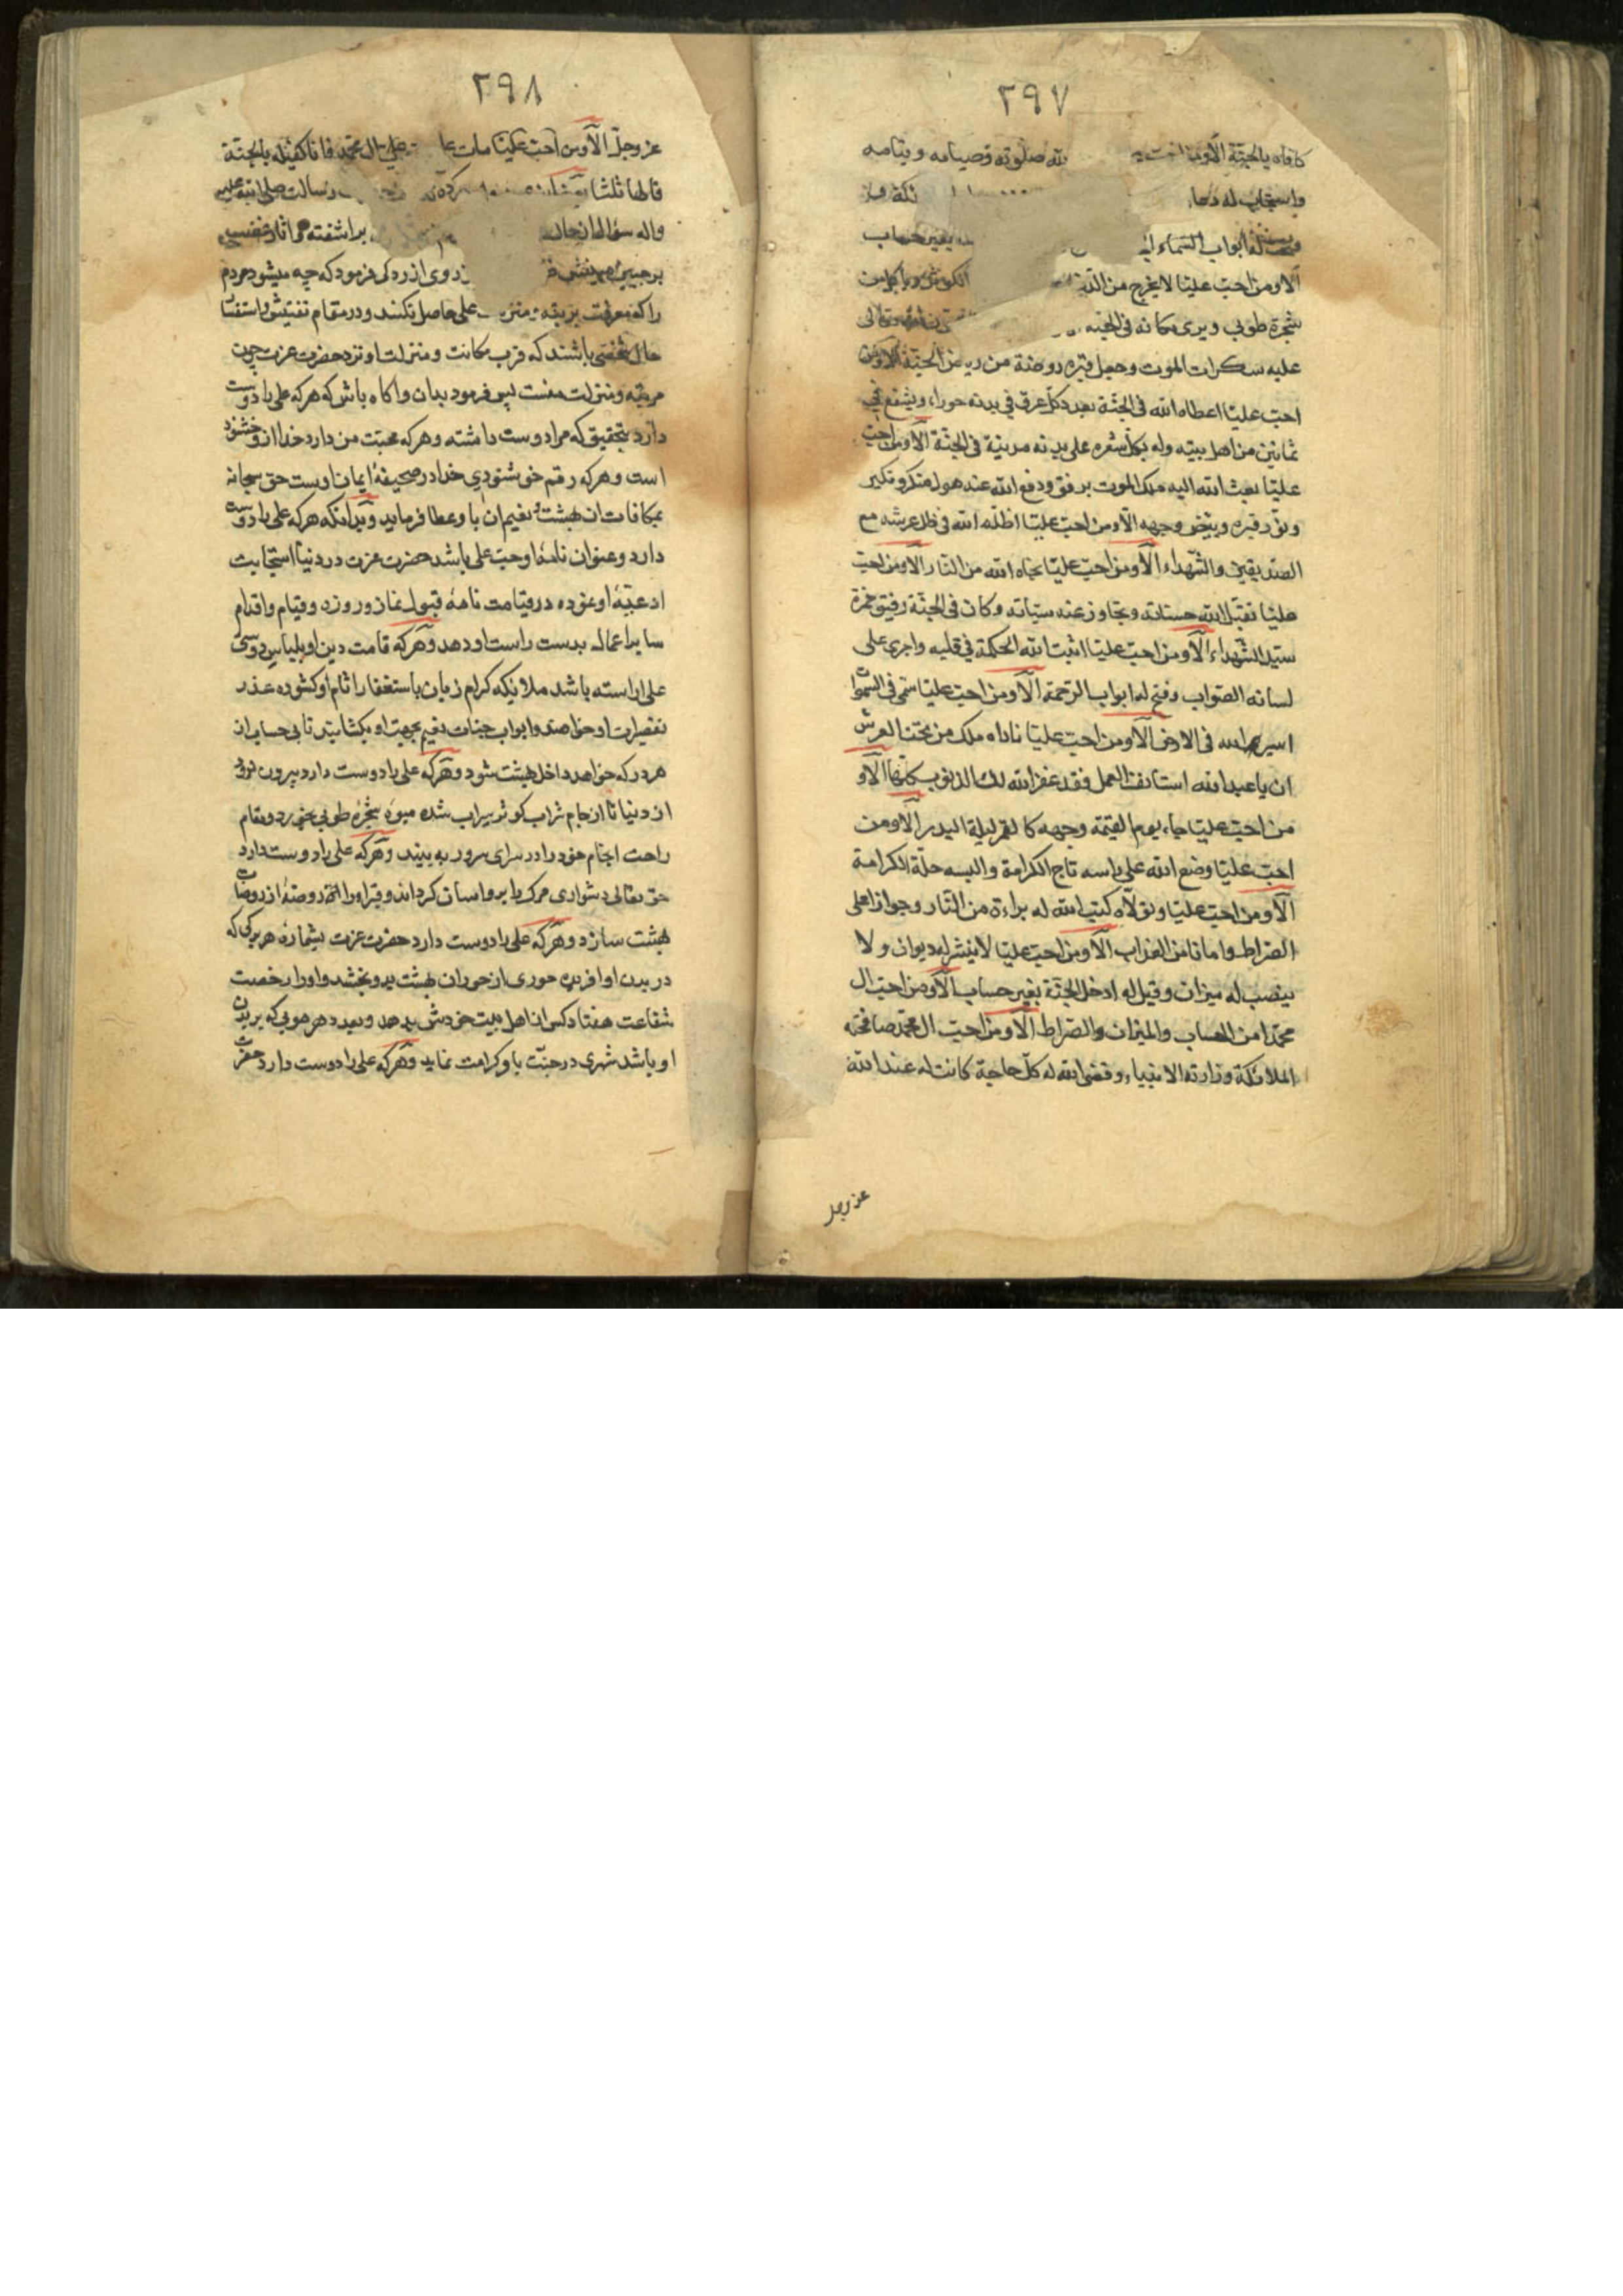 ٢٩٧
كافاه بالجنة الا ومن احب الله صلوته وصيامه وقيامه
واستجاب له دعاء
له ابواب السماء بغير حساب
الا ومن احب عليا لا يخرج من الدنيا الكوثر وياكل من
شجرة طوبى ويرى مكانه فى الجنة
عليه سكرات الموت وجعل قبره روضة من رياض الجنة الا ومن
احب عليا اعطاه الله فى الجنة بعدد كل عرق فى بدنه حوراء ويشفع فى
ثمانين من اهل بيته وله بكل شعره على بدنه مدينة فى الجنة الا ومن احب
عليا بعث الله اليه ملك الموت برفق ودفع الله عنه هول منكر ونكير
ونور قبره وبيض وجهه الا ومن احب عليا اظله الله فى ظل عرشه مع
الصديقين والشهداء الا ومن احب عليا نجاه الله من النار الا ومن احب
عليا تقبل الله حسناته وتجاوز عنه سيئاته وكان فى الجنة رفيق حمزة
سيد الشهداء الا ومن احب عليا اثبت الله الحكمة فى قلبه واجرى على
لسانه الصواب وفتح له ابواب الرحمة الا ومن احب عليا سمى فى السموات
اسير الله فى الارض الا ومن احب عليا ناداه ملك من تحت العرش
ان يا عبد الله استانف العمل فقد غفر الله لك الذنوب كلها الا و
من احب عليا جاء يوم القيمة وجهه كالقمر ليلة البدر الا ومن
احب عليا وضع الله على راسه تاج الكرامة والبسه حلة الكرامة
الا ومن احب عليا وتولاه كتب الله له براءة من النار وجوازا على
الصراط وامانا من العذاب الا ومن احب عليا لا ينشر له ديوان ولا
ينصب له ميزان وقيل له ادخل الجنة بغير حساب الا ومن احب ال
محمد امن الحساب والميزان والصراط الا ومن احب ال محمد صافحته
الملائكة وزارته الانبياء وقضى الله له كل حاجة كانت له عند الله
عز وجل
٢٩٨
عز وجل الا ومن احب عليا مات على ال محمد فانا كفيله بالجنة
قالها ثلثا رسالت صلى الله عليه
واله سؤال از حال بر اشفته
بر جبين روى ازردكى فرمود كه چه ميشود مردم
را كه معرفت بر تبه على حاصل نكنند و در مقام تفتيش و استفسار
حال شخصى باشند كه قرب مكانت و منزلت او نزد حضرت عزت چون
مرتبه و منزلت منست پس فرمود بدان و اكاه باش كه هر كه على را دوست
دارد بتحقيق كه مرا دوست داشته و هر كه محبت من دارد خدا ازو خشنود
است و هر كه رقم خوشنودى خدا در صحيفهٔ ايمان اوست حق سبحانه
بمكافات ان بهشت نعيم ان باو عطا فرمايد و بدانكه هر كه على را دوست
دارد و عنوان نامهٔ او حب على باشد حضرت عزت در دنيا استجابت
ادعيهٔ او نموده در قيامت نامهٔ قبول نماز و روزه و قيام و اقدام
ساير اعمال بدست راست او دهد و هر كه قامت دين او بلباس دوستى
على اراسته باشد ملائكه كرام زبان باستغفار اثام او كشوده عذر
تقصيرات او خواهند و ابواب جنات نعيم بجهت او بكشايند تا بى حساب از
هر در كه خواهد داخل بهشت شود و هر كه على را دوست دارد بيرون نرود
از دنيا تا از جام شراب كوثر سيراب شده ميوهٔ شجرهٔ طوبى بخورد و مقام
راحت انجام خود را در سراى سرور به بيند و هر كه على را دوست دارد
حق تعالى دشوارى مرك را برو اسان كرداند و قبر او را روضهٔ از روضات
بهشت سازد و هر كه على را دوست دارد حضرت عزت بشماره هر ركى كه
در بدن او افريده حورى از حوران بهشت بدو بخشد و او را رخصت
شفاعت هفتاد كس از اهل بيت خودش بدهد و بعدد هر مويى كه بر بدن
او باشد شهرى در جنت باو كرامت نمايد و هر كه على را دوست دارد حضرت